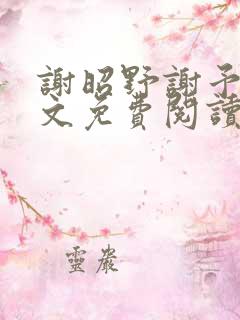 謝昭野謝予
文免費閱讀
靈巖